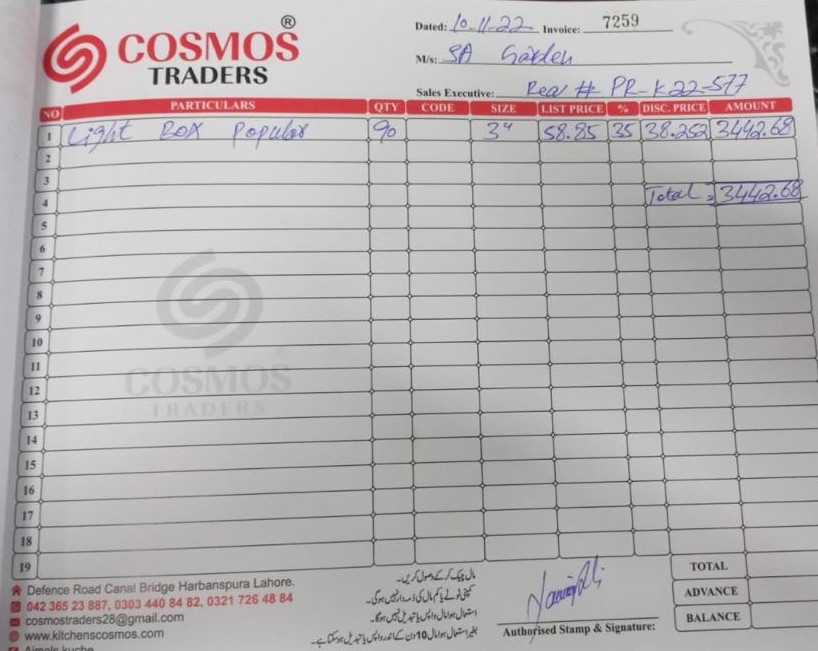 COSMOS®
TRADERS
Dated: 10-11-22 Invoice: 7259
M/s: SA Garden
Sales Executive: Req # PR-K22-577
NO PARTICULARS QTY CODE SIZE LIST PRICE % DISC. PRICE AMOUNT
1 Light Box Popular 90 3" 58.85 35 38.252 3442.68
2
3
4 Total = 3442.68
5
6
7
8
9
10
11
12
13
14
15
16
17
18
19
COSMOS
TRADERS
Defence Road Canal Bridge Harbanspura Lahore.
042 365 23 887, 0303 440 84 82, 0321 726 48 84
cosmostraders28@gmail.com
www.kitchenscosmos.com
مال چیک کر کے وصول کریں۔
کمپنی ٹوٹے یا کم مال کی ذمہ دار نہیں ہوگی۔
استعمال ہوا مال واپس یا تبدیل نہیں ہوگا۔
بغیر استعمال ہوا مال 10 دن کے اندر واپس یا تبدیل ہو سکتا ہے۔
Authorised Stamp & Signature:
TOTAL
ADVANCE
BALANCE